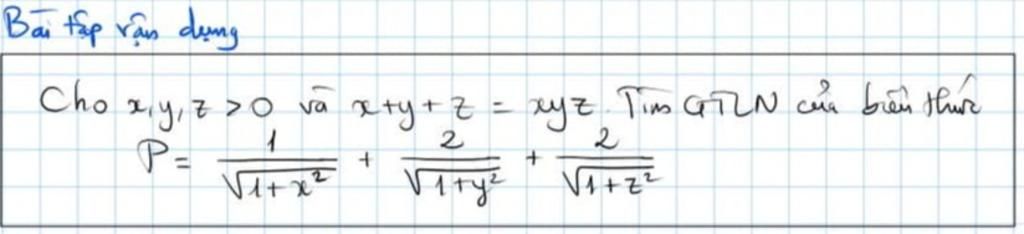 Bài tập vận dụng
Cho x, y, z > 0 và x + y + z = xyz. Tìm GTLN của biểu thức
P = 1/√(1+x²) + 2/√(1+y²) + 2/√(1+z²)